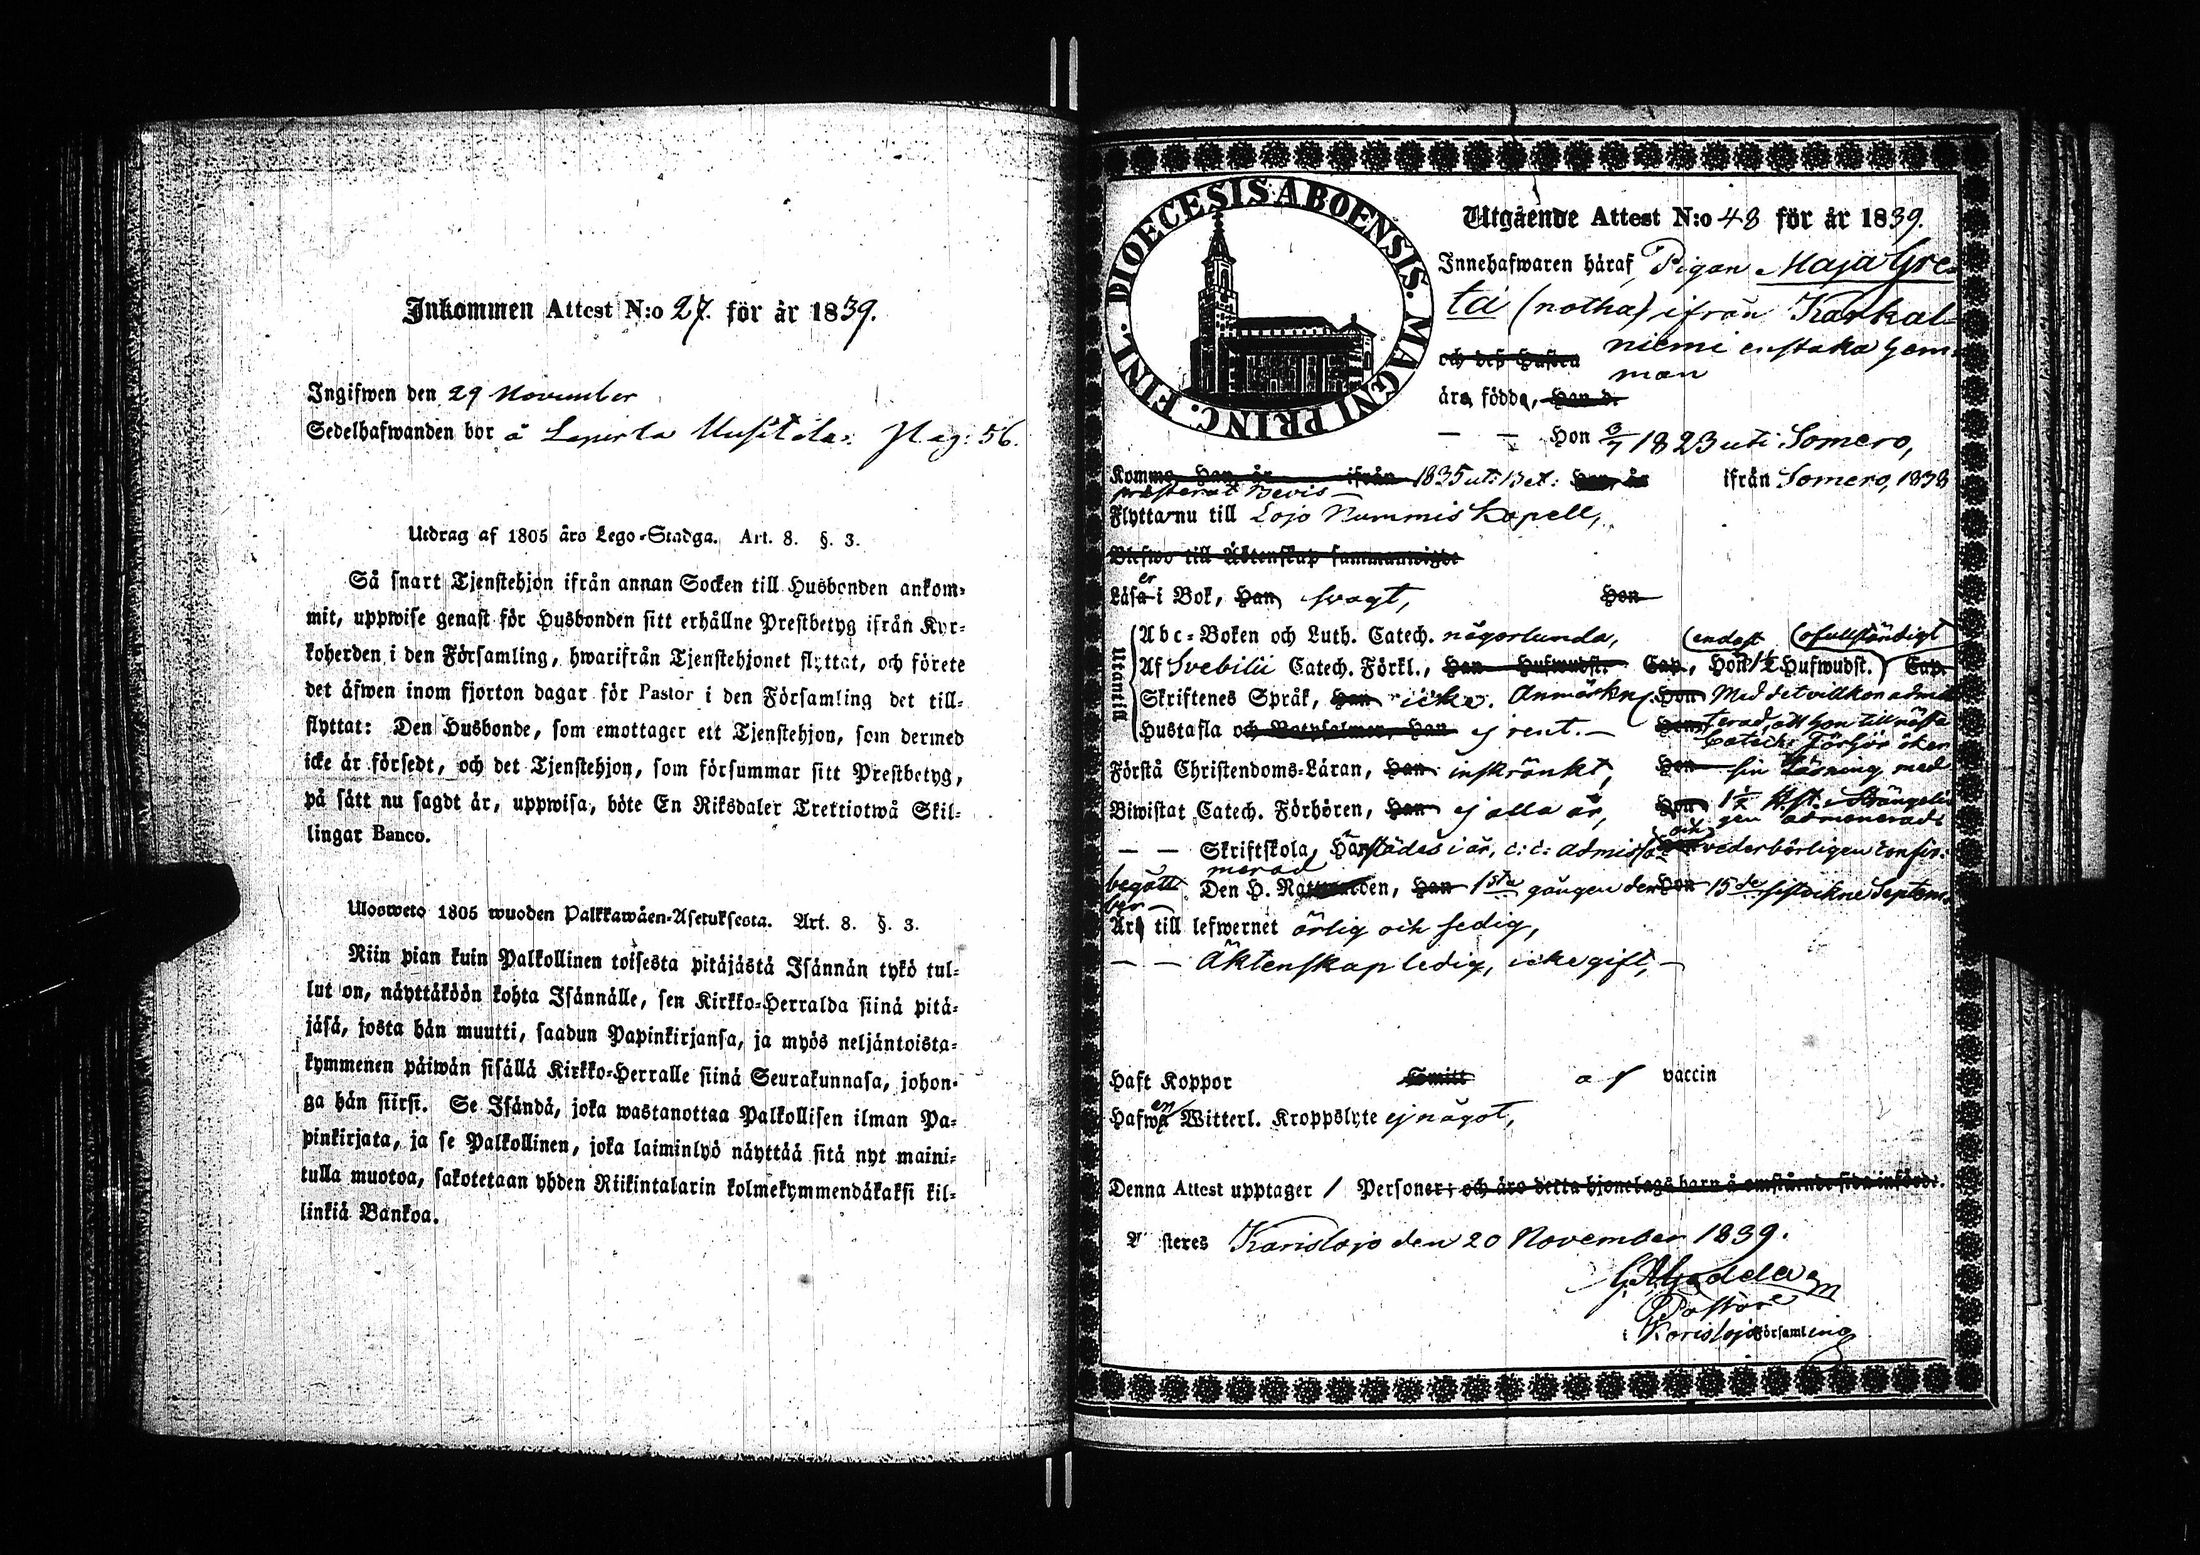 Inkommen Attest N:o 27. för år 1839.
Ingifwen den 29 November
Sedelhafwanden bor å Leppersta Uusitalo. Pag: 56.
Utdrag af 1805 års Lego-Stadga. Art. 8. §. 3.
Så snart Tjenstehjon ifrån annan Socken till Husbonden ankom-
mit, uppwise genast för Husbonden sitt erhållne Prestbetyg ifrån Kyr-
koherden i den Församling, hwarifrån Tjenstehjonet flyttat, och förete
det äfwen inom fjorton dagar för Pastor i den Församling det till-
flyttat: Den Husbonde, som emottager ett Tjenstehjon, som dermed
icke är försedt, och det Tjenstehjon, som försummar sitt Prestbetyg,
på sätt nu sagdt är, uppwisa, böte En Riksdaler Trettiotwå Skil-
lingar Banco.
Ulosweto 1805 wuoden Palkkawäen-Asetuksesta. Art. 8. §. 3.
Niin pian kuin Palkollinen toisesta pitäjästä Isännän tykö tul-
lut on, näyttäköön kohta Isännälle, sen Kirkko-Herralda siinä pitä-
jäsä, josta hän muutti, saadun Papinkirjansa, ja myös neljäntoista-
kymmenen päiwän sisällä Kirkko-Herralle siinä Seurakunnasa, johon-
ga hän siirsi. Se Isändä, joka wastanottaa Palkollisen ilman Pa-
pinkirjata, ja se Palkollinen, joka laiminlyö näyttää sitä nyt maini-
tulla muotoa, sakotetaan yhden Riikintalarin kolmekymmendäkaksi kil-
linkiä Bankoa.
DIOECESIS ABOENSIS. MAGNI PRINC. FINL.
Utgående Attest N:o 48 för år 1839.
Innehafwaren häraf, Pigan Maja Gre-
ta (notha) ifrån Karkal-
och deß Hustru niemi enstaka hem-
man
äro födde, Han d.
— — Hon 6/7 1823 uti Somero,
Komme, Han år ifrån 1835 uti Bet: Hon, år ifrån Somero, 1838
presterat Bevis —
Flytta nu till Lojo Nummis Kapell,
Blefwo till Äktenskap sammanwigde
Läser i Bok, Han, svagt, Hon
Utantill
Abc-Boken och Luth. Catech. någorlunda, (endast ofullständigt
Af Svebilii Catech. Förkl., Han Hufwudst. Cap., Hon 1½ Hufwudst.) Cap.
Skriftenes Språk, Han icke. Anmärkn. Hon Med det villkor admit
Hustafla och Botpsalmer, Han ej rent. — Hon, terad att hon till nästa
Catech: Förhör öker
Förstå Christendoms-Läran, Han inskränkt, Hon sin Läsning med
Biwistat Catech. Förhören, Han ej alla år, Hon 1½ H.st.
— — Skriftskola, Härstädes i år, admissa och vederbörligen confir-
merad
begått Den H. Nattwarden, Han 1sta gången den Hon 15de sistvikne Septem-
ber —
Äro till lefwernet ärlig och sedig,
— — Äktenskap ledig, icke gift, —
Haft Koppor Smitt af vaccin
Hafwen Witterl. Kroppslyte ej något,
Denna Attest upptager 1 Personer; och äro detta hjonelags barn å omstående sida införde.
steres Karislojo den 20 November 1839.
Pastor
i Karislojo Församling